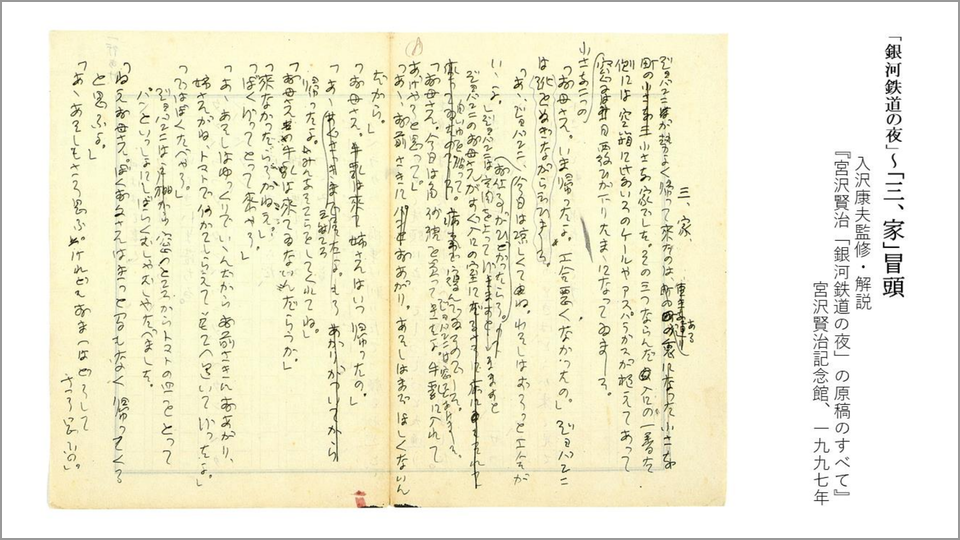 「銀河鉄道の夜」～「三、家」冒頭
入沢康夫監修・解説
『宮沢賢治「銀河鉄道の夜」の原稿のすべて』
宮沢賢治記念館、一九九七年
三、家、
ジョバンニが勢よく帰って来たのは、
町の 小さな家でした。その三つならんだ入口の一番左
側には空箱に紫いろのケールやアスパラガスが植えてあって
小さな二つの
窓には日覆ひが下りたまゝになってゐました。
「お母さん。いま帰ったよ。工合悪くなかったの。」ジョバンニ
は靴をぬぎながら云ひました。
「あゝ、ジョバンニ、お仕事がひどかったらう。今日は涼しくてね。わたしはずうっと工合が
いゝよ。」
ジョバンニは玄関を上って行きますと
ジョバンニのお母さんがすぐ入口の室に
「お母さん。今日は角砂糖を買って来たよ。牛乳に入れて
あげやうと思って。」
「あゝ、お前さきにおあがり。あたしはまだほしくないん
だから。」
「お母さん。姉さんはいつ帰ったの。」
「あゝ
帰ったよ。みんなそこらをしてくれてね。」
「お母さんの牛乳は来てゐないんだらうか。」
「来なかったらうかねえ。」
「ぼく行ってとって来やう。」
「あゝあたしはゆっくりでいゝんだからお前さきにおあがり、
姉さんがね、トマトで何かこしらえてそこへ置いて行ったよ。」
「ではぼくたべやう。」
ジョバンニは窓のところからトマトの皿をとって
パンといっしょにしばらくむしゃむしゃたべました。
「ねえお母さん。ぼくお父さんはきっと間もなく帰ってくる
と思ふよ。」
「あゝあたしもさう思ふ。けれどもおまへはどうして
さう思ふの。」